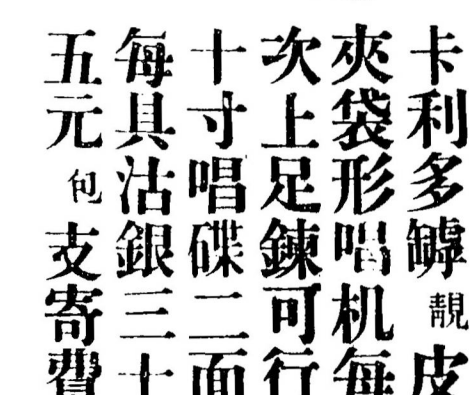 卡利多罅靚皮
夾袋形唱机每
次上足鍊可行
十寸唱碟二面
每具沽銀三十
五元包支寄費